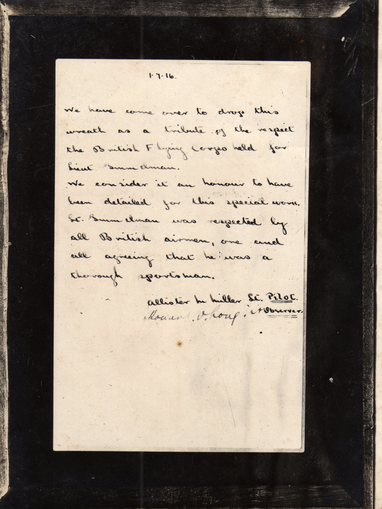 1.7.16.
We have come over to drop this
wreath as a tribute of the respect
the British Flying Corps held for
Lieut Immelman.
We consider it an honour to have
been detailed for this special work.
Lt. Immelman was respected by
all British airmen, one and
all agreeing that he was a
thorough sportsman.
Allister M Miller Lt. Pilot.
Howard O. Long Lt Observer.